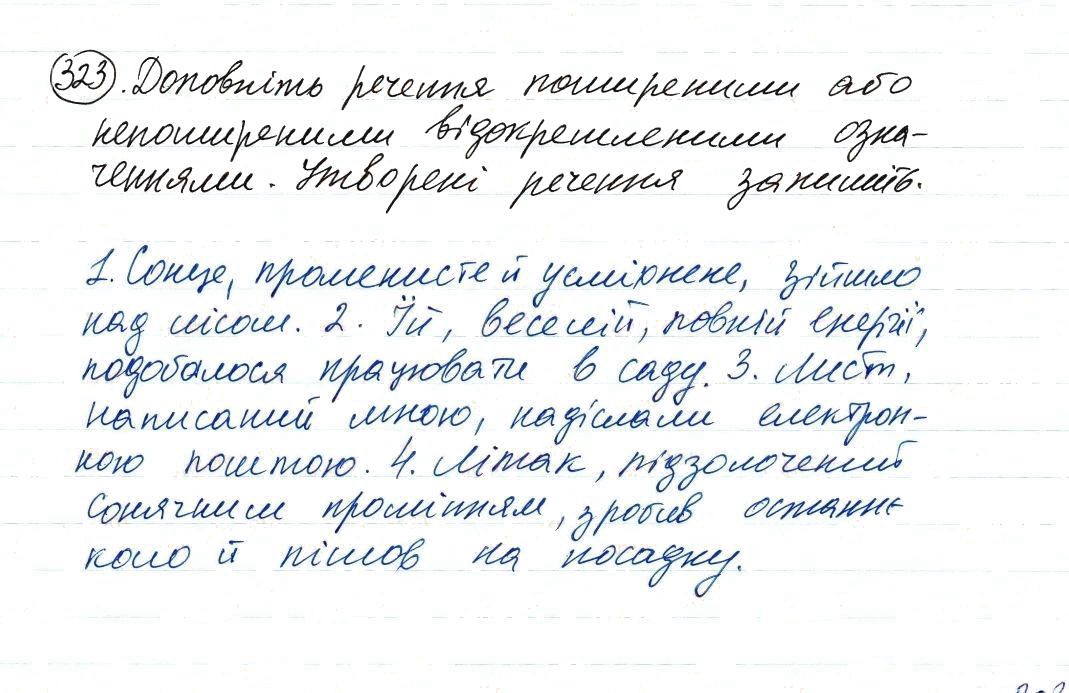 323. Доповніть речення поширеними або
непоширеними відокремленими озна-
ченнями. Утворені речення запишіть.
1. Сонце, променисте й усміхнене, зійшло
над лісом. 2. Їй, веселій, повній енергії,
подобалося працювати в саду. 3. Лист,
написаний мною, надіслали електрон-
ною поштою. 4. Літак, підзолочений
сонячним промінням, зробив останнє
коло й пішов на посадку.